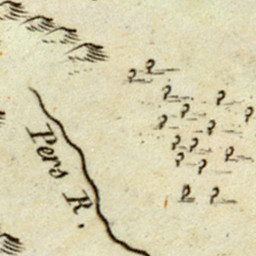 Pers R.